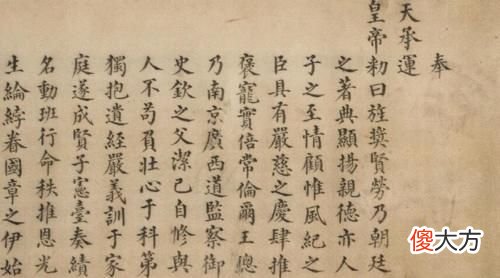 奉
天承運
皇帝勑曰旌奬賢勞乃朝廷
之著典顯揚親德亦人
子之至情顧惟風紀之
臣具有嚴慈之慶肆推
褒寵實倍常倫爾王總
乃南京廣西道監察御
史欽之父潔己自修與
人不苟負壯心于科第
獨抱遺經嚴義訓于家
庭遂成賢子憲臺奏績
名動班行命秩推恩光
生綸綍眷國章之伊始
傻大方